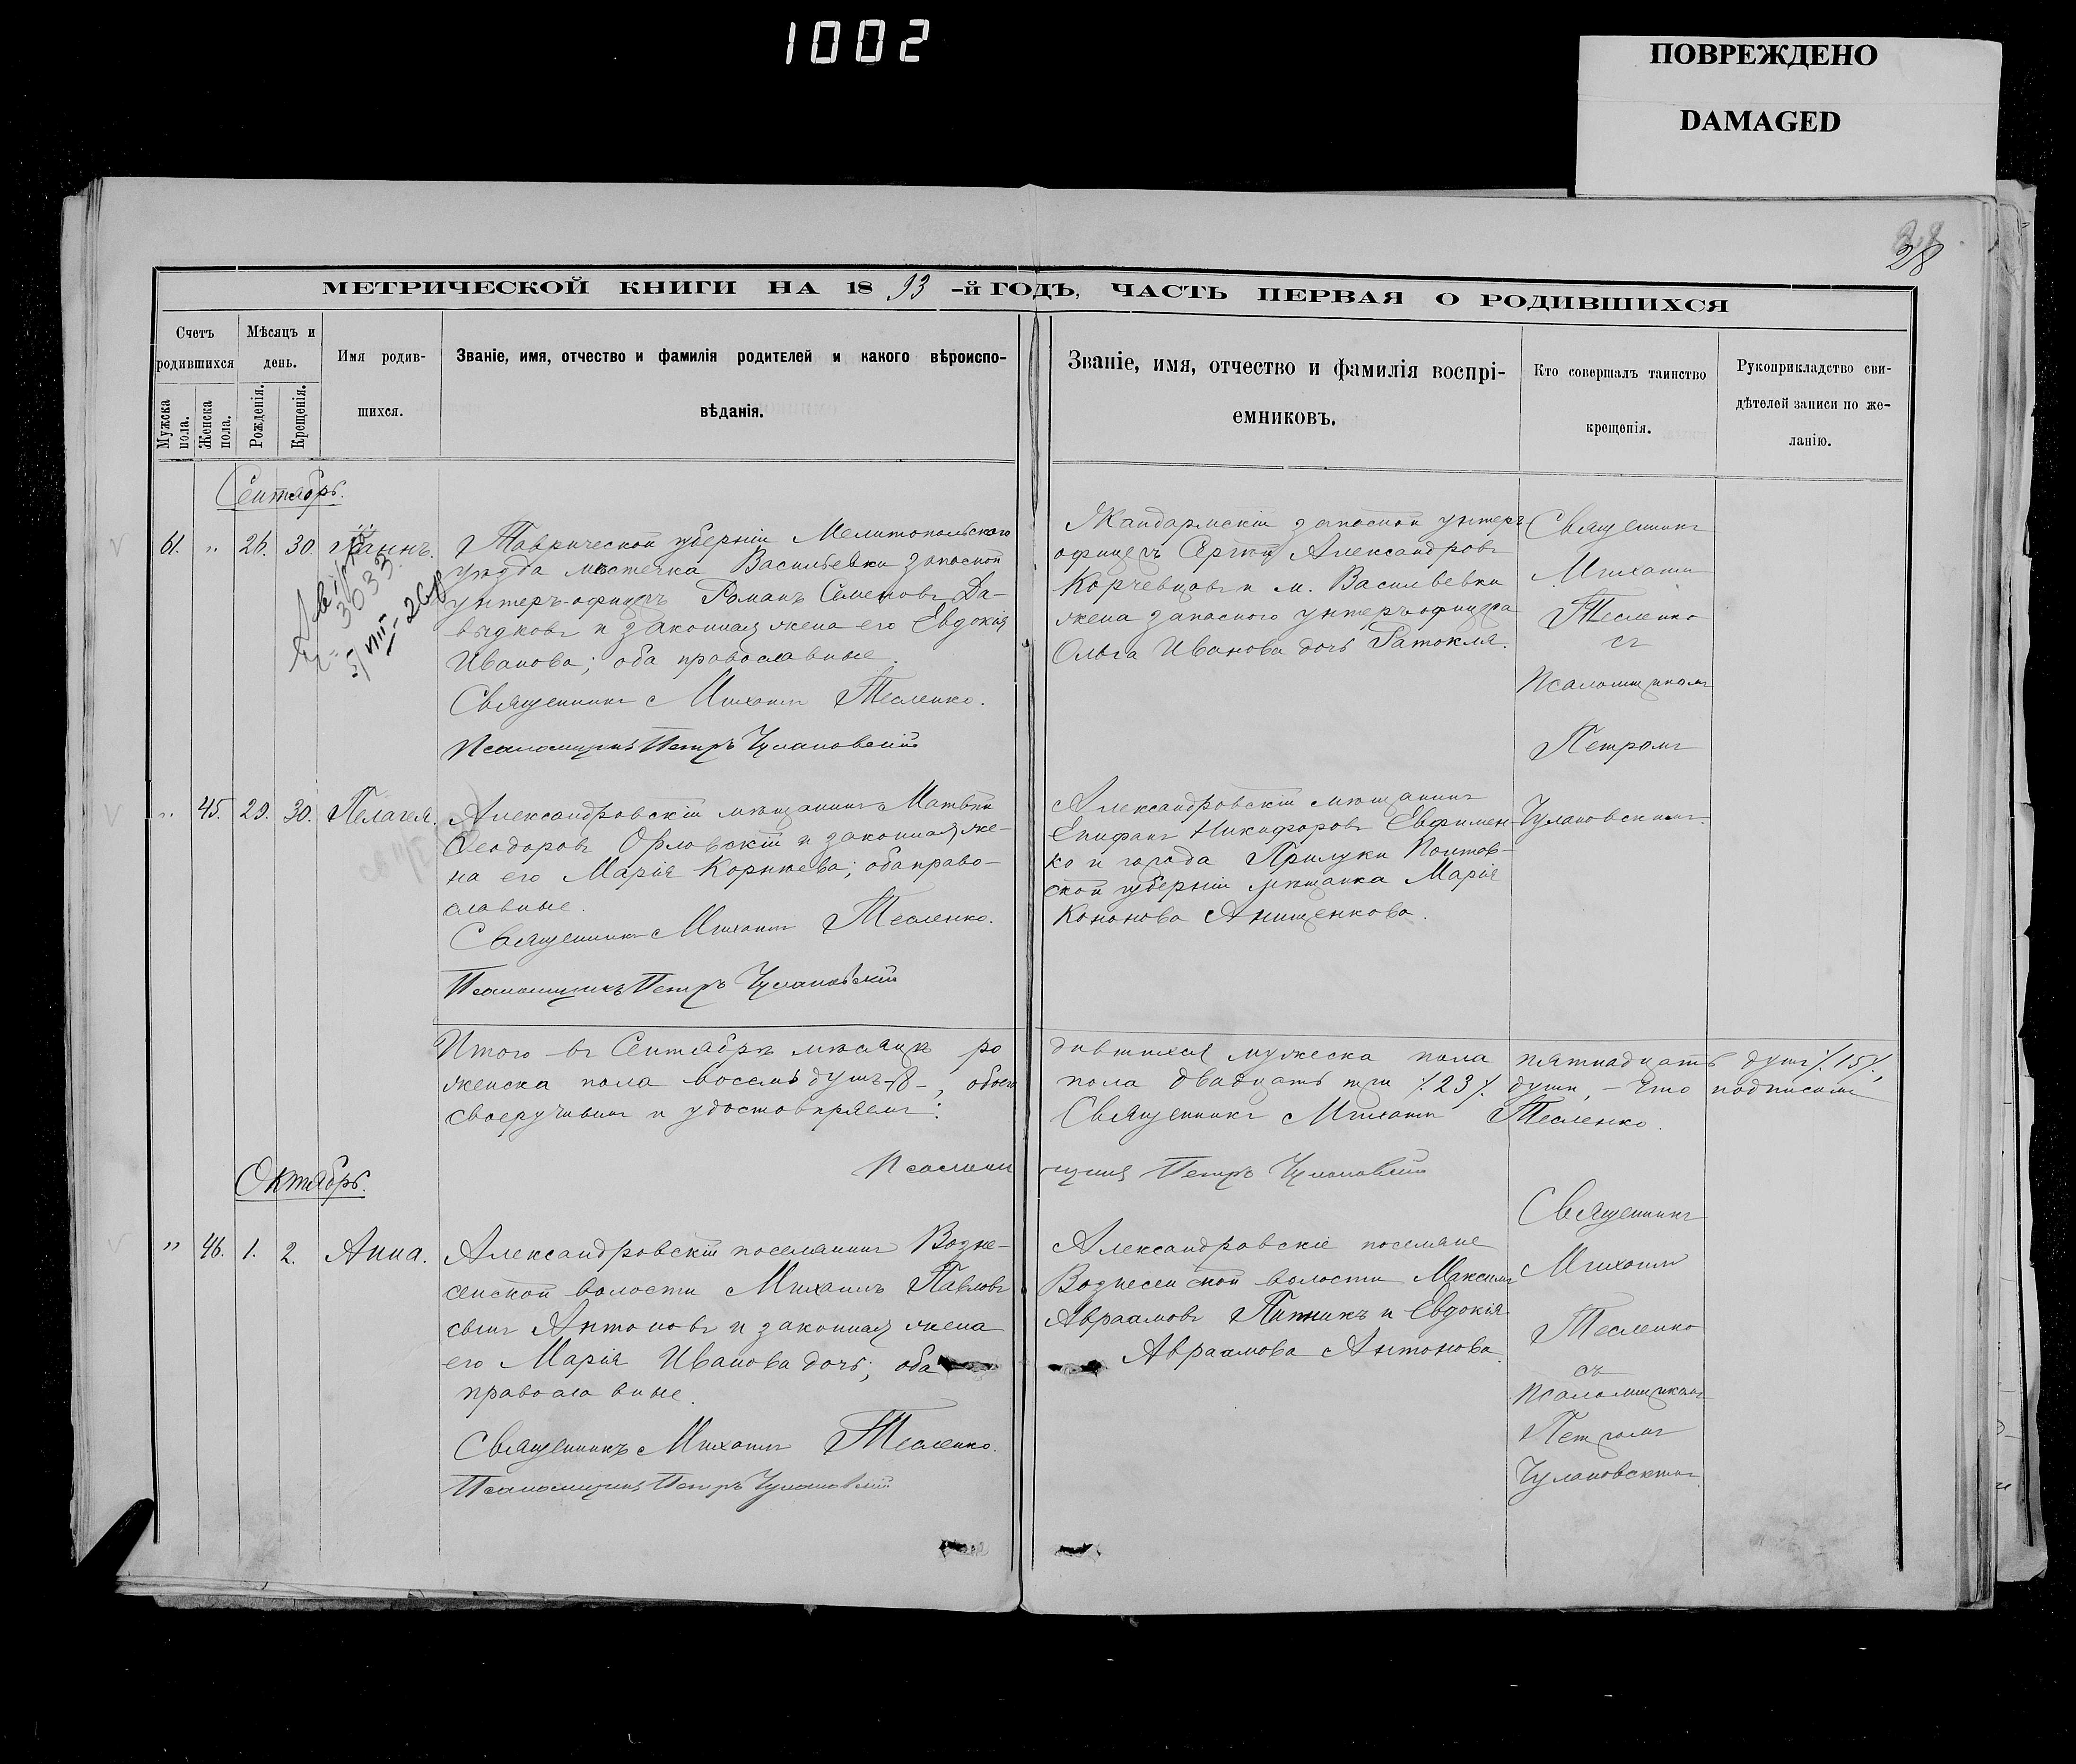 1002
ПОВРЕЖДЕНО
DAMAGED
28
МЕТРИЧЕСКОЙ КНИГИ НА 1893-й ГОДЪ, ЧАСТЬ ПЕРВАЯ О РОДИВШИХСЯ
Счетъ родившихся
Мужска пола.
Женска пола.
Мѣсяцъ и день.
Рожденія.
Крещенія.
Имя родив-
шихся.
Званіе, имя, отчество и фамилія родителей и какого вѣроиспо-
вѣданія.
Званіе, имя, отчество и фамилія воспрі-
емниковъ.
Кто совершалъ таинство
крещенія.
Рукоприкладство сви-
дѣтелей записи по же-
ланію.
Сентябрь.
61. " 26. 30. Іоаннъ.
3033
Таврической губерніи Мелитопольскаго
уѣзда мѣстечка Васильевки запасной
унтеръ-офицеръ Романъ Семеновъ Да-
выдковъ и законная жена его Евдокія
Иванова; оба православные.
Священникъ Михаилъ Тесленко.
Псаломщикъ Петръ Чулановскій
Жандармскій запасной унтеръ
офицеръ Сергѣй Александровъ
Корчевцовъ и м. Васильевки
жена запаснаго унтеръ офицера
Ольга Иванова дочь
Священникъ
Михаилъ
Тесленко
съ
Псаломщикомъ
Петромъ
Чулановскимъ.
" 45. 29. 30. Пелагея.
Александровскій мѣщанинъ Матвѣй
Ѳеодоровъ Орловскій и законная же-
на его Марія Корнѣева; оба право-
славные.
Священникъ Михаилъ Тесленко.
Псаломщикъ Петръ Чулановскій
Александровскій мѣщанинъ
Епифанъ Никифоровъ Евфимен-
ко и города Прилуки Полтав-
ской губерніи мѣщанка Марія
Кононова Анищенкова.
Итого въ Сентябрѣ мѣсяцѣ родившихся мужеска пола пятнадцать душъ ./.15./.,
женска пола восемь душъ -8-, обоего пола двадцать три ./.23./. души, - что подписомъ
своеручнымъ и удостовѣряемъ: Священникъ Михаилъ Тесленко.
Псаломщикъ Петръ Чулановскій
Октябрь.
" 46. 1. 2. Анна.
Александровскій поселянинъ Возне-
сенской волости Михаилъ Павловъ
сынъ Антоновъ и законная жена
его Марія Иванова дочь; оба
православные.
Священникъ Михаилъ Тесленко.
Псаломщикъ Петръ Чулановскій
Александровскіе поселяне
Вознесенской волости Максимъ
Авраамовъ Питникъ и Евдокія
Авраамова Антонова.
Священникъ
Михаилъ
Тесленко
съ
Псаломщикомъ
Петромъ
Чулановскимъ